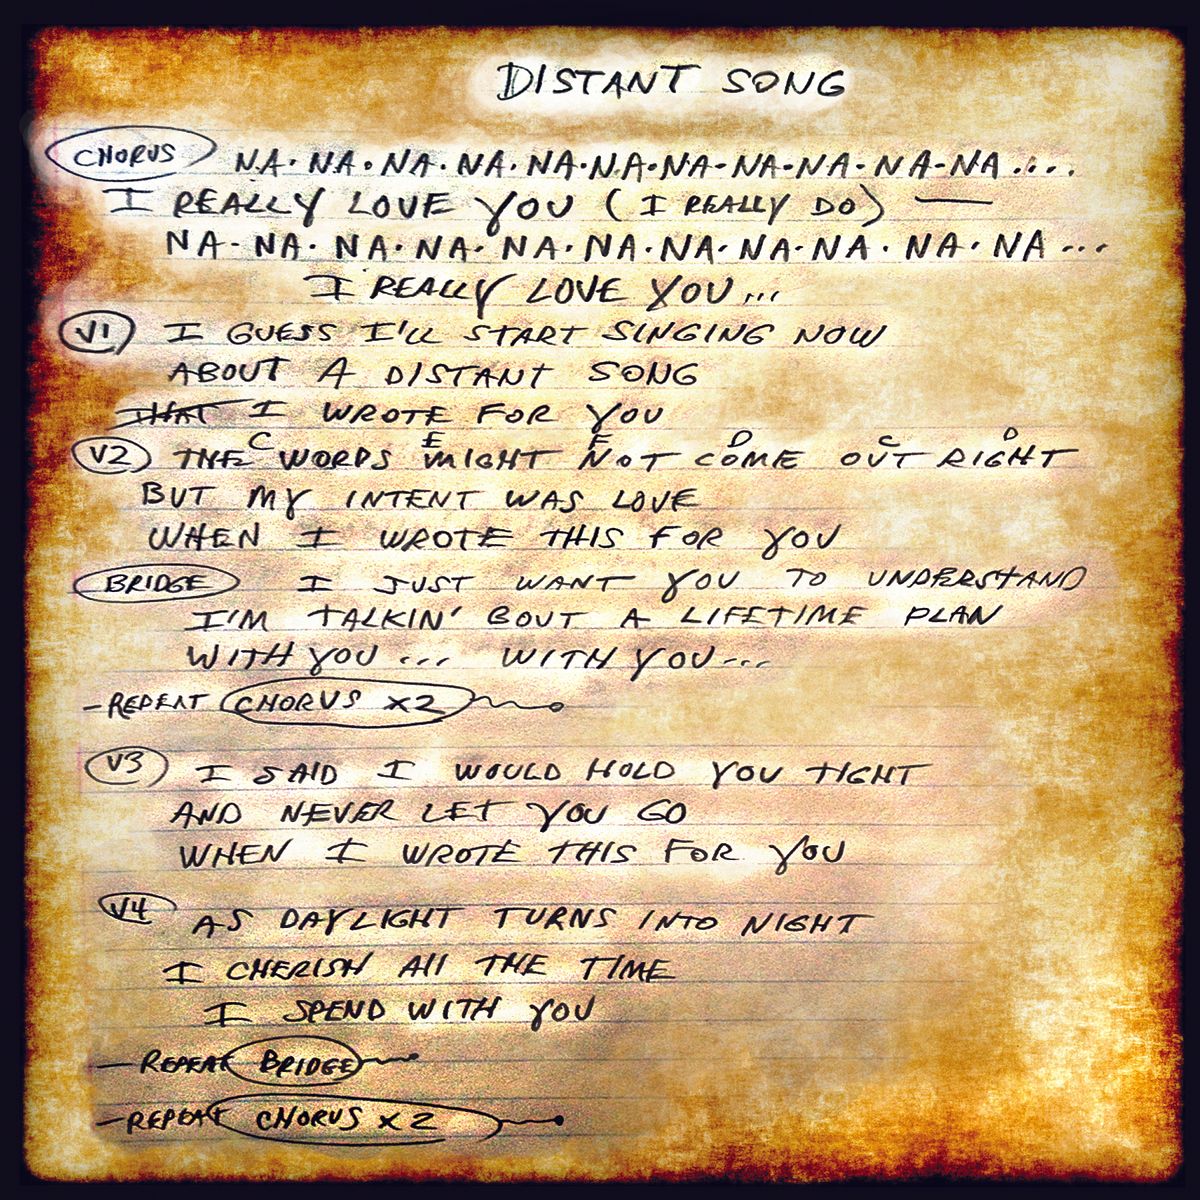 DISTANT SONG
CHORUS NA. NA. NA. NA. NA. NA. NA- NA- NA. NA-NA....
I REALLY LOVE YOU (I REALLY DO) —
NA- NA. NA. NA. NA. NA. NA. NA. NA. NA. NA...
I REALLY LOVE YOU...
V1 I GUESS I'LL START SINGING NOW
ABOUT A DISTANT SONG
THAT I WROTE FOR YOU
C E F D C D
V2 THE WORDS MIGHT NOT COME OUT RIGHT
BUT MY INTENT WAS LOVE
WHEN I WROTE THIS FOR YOU
BRIDGE I JUST WANT YOU TO UNDERSTAND
I'M TALKIN' BOUT A LIFETIME PLAN
WITH YOU... WITH YOU...
-REPEAT CHORUS x2
V3 I SAID I WOULD HOLD YOU TIGHT
AND NEVER LET YOU GO
WHEN I WROTE THIS FOR YOU
V4 AS DAYLIGHT TURNS INTO NIGHT
I CHERISH All THE TIME
I SPEND WITH YOU
-REPEAT BRIDGE
-REPEAT CHORUS x 2